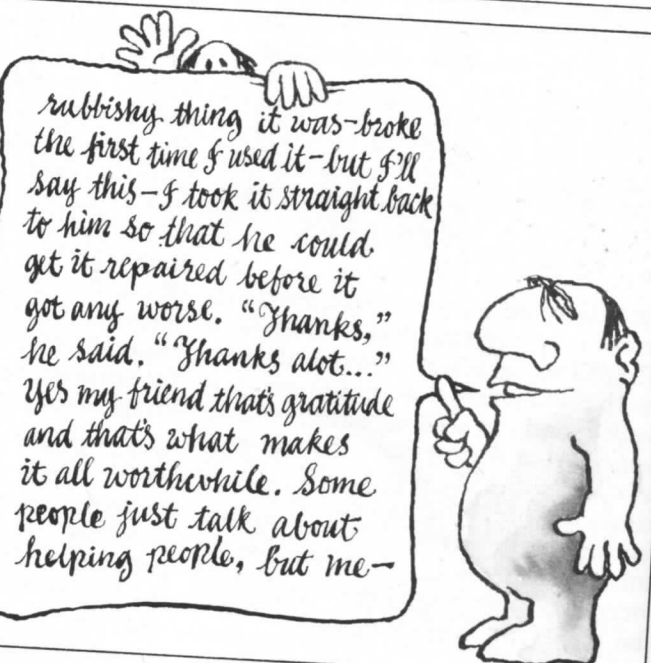 rubbishy thing it was-broke
the first time I used it-but I'll
say this-I took it straight back
to him so that he could
get it repaired before it
got any worse. "Thanks,"
he said. "Thanks alot..."
Yes my friend that's gratitude
and that's what makes
it all worthwhile. Some
people just talk about
helping people, but me-